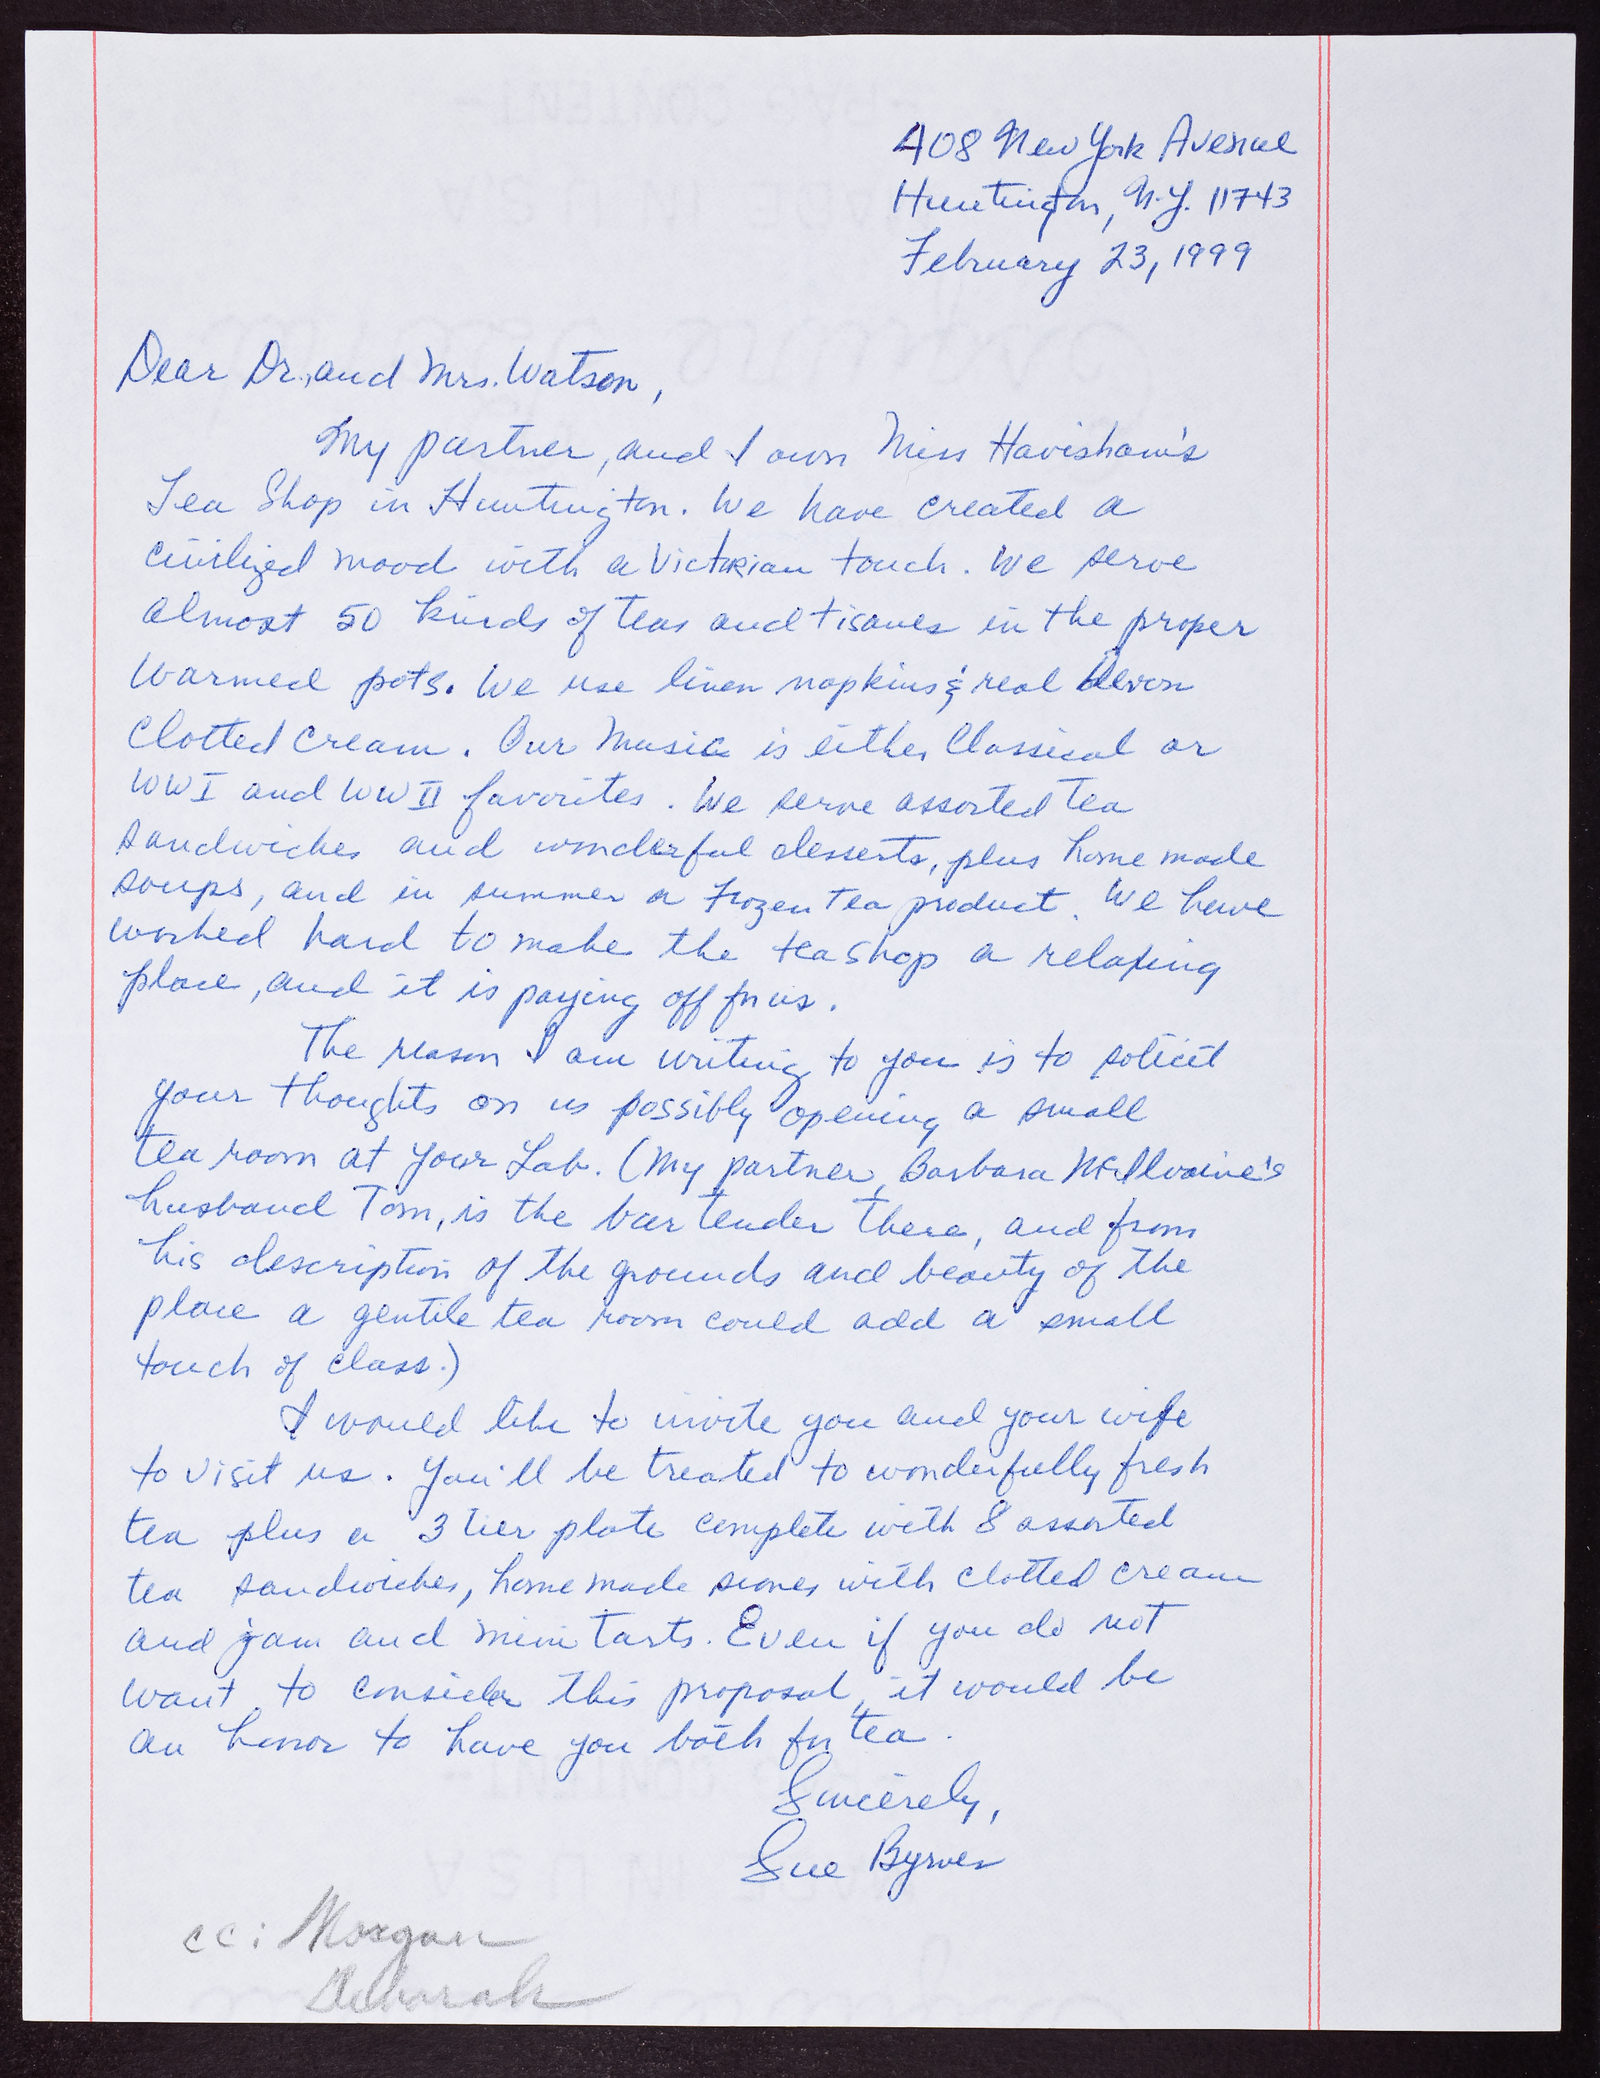 408 New York Avenue
Huntington, N.Y. 11743
February 23, 1999
Dear Dr. and Mrs. Watson,
My partner, and I own Miss Havisham's
Tea Shop in Huntington. We have created a
civilized mood with a Victorian touch. We serve
almost 50 kinds of teas and tisanes in the proper
warmed pots. We use linen napkins & real Devon
Clotted Cream. Our music is either Classical or
WWI and WWII favorites. We serve assorted tea
sandwiches and wonderful desserts, plus home made
soups, and in summer a Frozen Tea product. We have
worked hard to make the tea shop a relaxing
place, and it is paying off for us.
The reason I am writing to you is to solicit
your thoughts on us possibly opening a small
tea room at your Lab. (My partner, Barbara McIlvaine's
husband Tom, is the bartender there, and from
his description of the grounds and beauty of the
place a gentile tea room could add a small
touch of class.)
I would like to invite you and your wife
to visit us. You'll be treated to wonderfully fresh
tea plus a 3 tier plate complete with 8 assorted
tea sandwiches, home made scones with clotted cream
and jam and mini tarts. Even if you do not
want to consider this proposal, it would be
an honor to have you both for tea.
Sincerely,
Sue Byrnes
cc: Morgan
Deborah